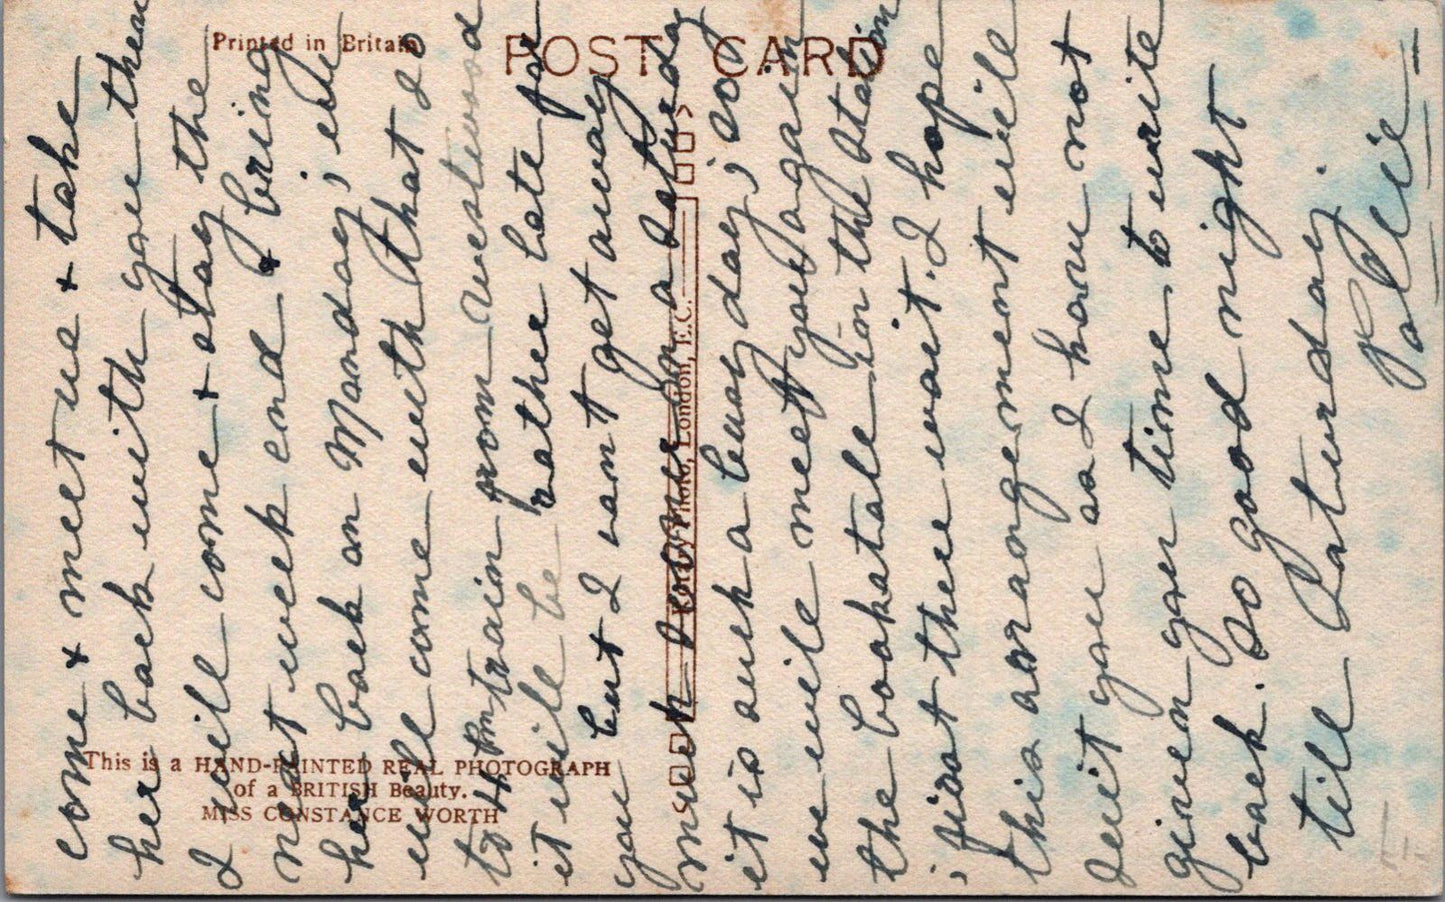 Printed in Britain
POST CARD
This is a HAND-PAINTED REAL PHOTOGRAPH
of a BRITISH Beauty.
MISS CONSTANCE WORTH
Photo, London, E.C.
come & meet us & take
her back with you then
I will come & stay the
next week end & bring
her back on Monday; we
will come with that do
to 4 pm train from Westwood
it will be rather late for
you but I cant get away
much sooner on a Saturday
it is such a busy day; so
we will meet you again
the bookstall in the station
; first there wait. I hope
this arrangement will
suit you as I have not
given you time to write
back. So good night
till Saturday.
Pollie